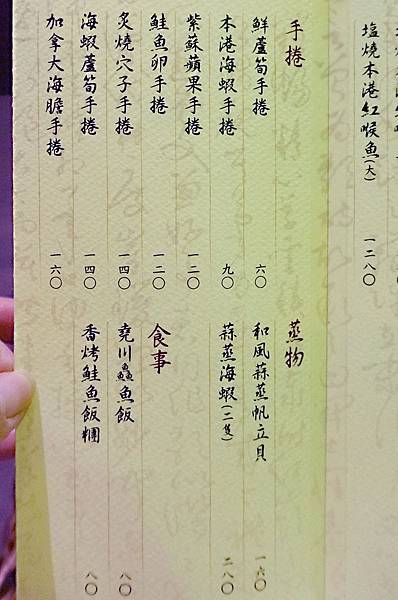 塩燒本港紅喉魚(大) 一二八〇
手捲
鮮蘆筍手捲 六〇
本港海蝦手捲 九〇
紫蘇蘋果手捲 一二〇
鮭魚卵手捲 一二〇
炙燒穴子手捲 一四〇
海蝦蘆筍手捲 一四〇
加拿大海膽手捲 一六〇
蒸物
和風蒜蒸帆立貝 一六〇
蒜蒸海蝦(二隻) 二八〇
食事
堯川鱻魚飯 八〇
香烤鮭魚飯糰 八〇